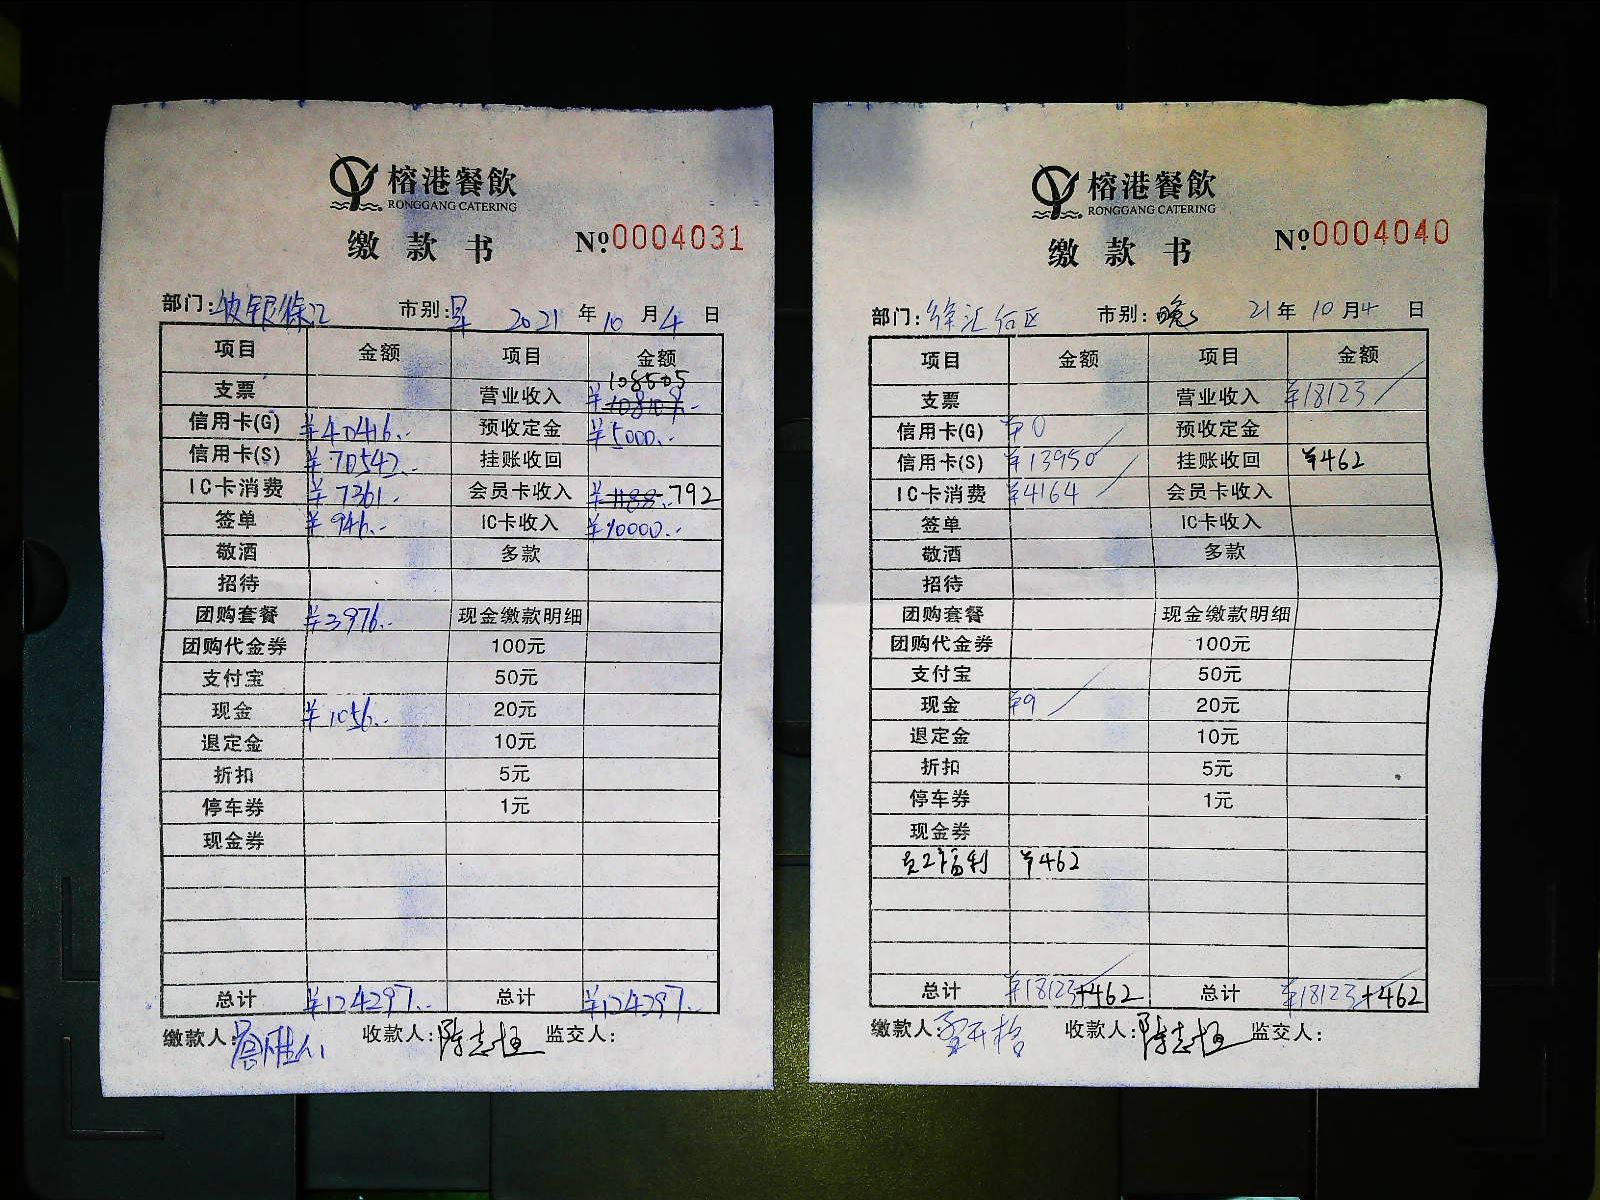 榕港餐飲
RONGGANG CATERING
缴款书 №0004031
部门: 市别:早 2021年10月4日
项目 金额 项目 金额
支票 营业收入 108505 ¥108109.-
信用卡(G) ¥40416.- 预收定金 ¥5000.-
信用卡(S) ¥70542.- 挂账收回
IC卡消费 ¥7361.- 会员卡收入 ¥1188.- 792
签单 ¥946.- IC卡收入 ¥10000.-
敬酒 多款
招待
团购套餐 ¥3976.- 现金缴款明细
团购代金券 100元
支付宝 50元
现金 ¥1056.- 20元
退定金 10元
折扣 5元
停车券 1元
现金券
总计 ¥124297.- 总计 ¥124297.-
缴款人: 收款人:陈志恒 监交人:
榕港餐飲
RONGGANG CATERING
缴款书 №0004040
部门:徐汇台区 市别:晚 21年10月4日
项目 金额 项目 金额
支票 营业收入 ¥18123
信用卡(G) ¥0 预收定金
信用卡(S) ¥13950 挂账收回 ¥462
IC卡消费 ¥4164 会员卡收入
签单 IC卡收入
敬酒 多款
招待
团购套餐 现金缴款明细
团购代金券 100元
支付宝 50元
现金 ¥9 20元
退定金 10元
折扣 5元
停车券 1元
现金券
员工福利 ¥462
总计 ¥18123+462 总计 ¥18123+462
缴款人: 收款人:陈志恒 监交人: